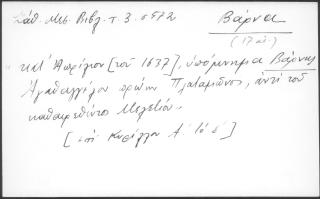 Σάθ. Μεσ. Βιβλ. τ. 3. σ 572
Βάρνα
(17 αἰ.)
κατ' Ἀπρίλιον [τοῦ 1637], ὑπόμνημα Βάρνης
Ἀγαθαγγέλου πρώην Πλαταμῶνος, ἀντὶ τοῦ
καθαιρεθέντος Μελετίου.
[ἐπὶ Κυρίλλου Α΄